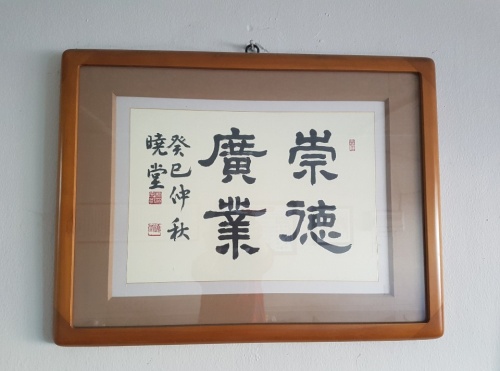 崇德
廣業
癸巳仲秋
曉堂